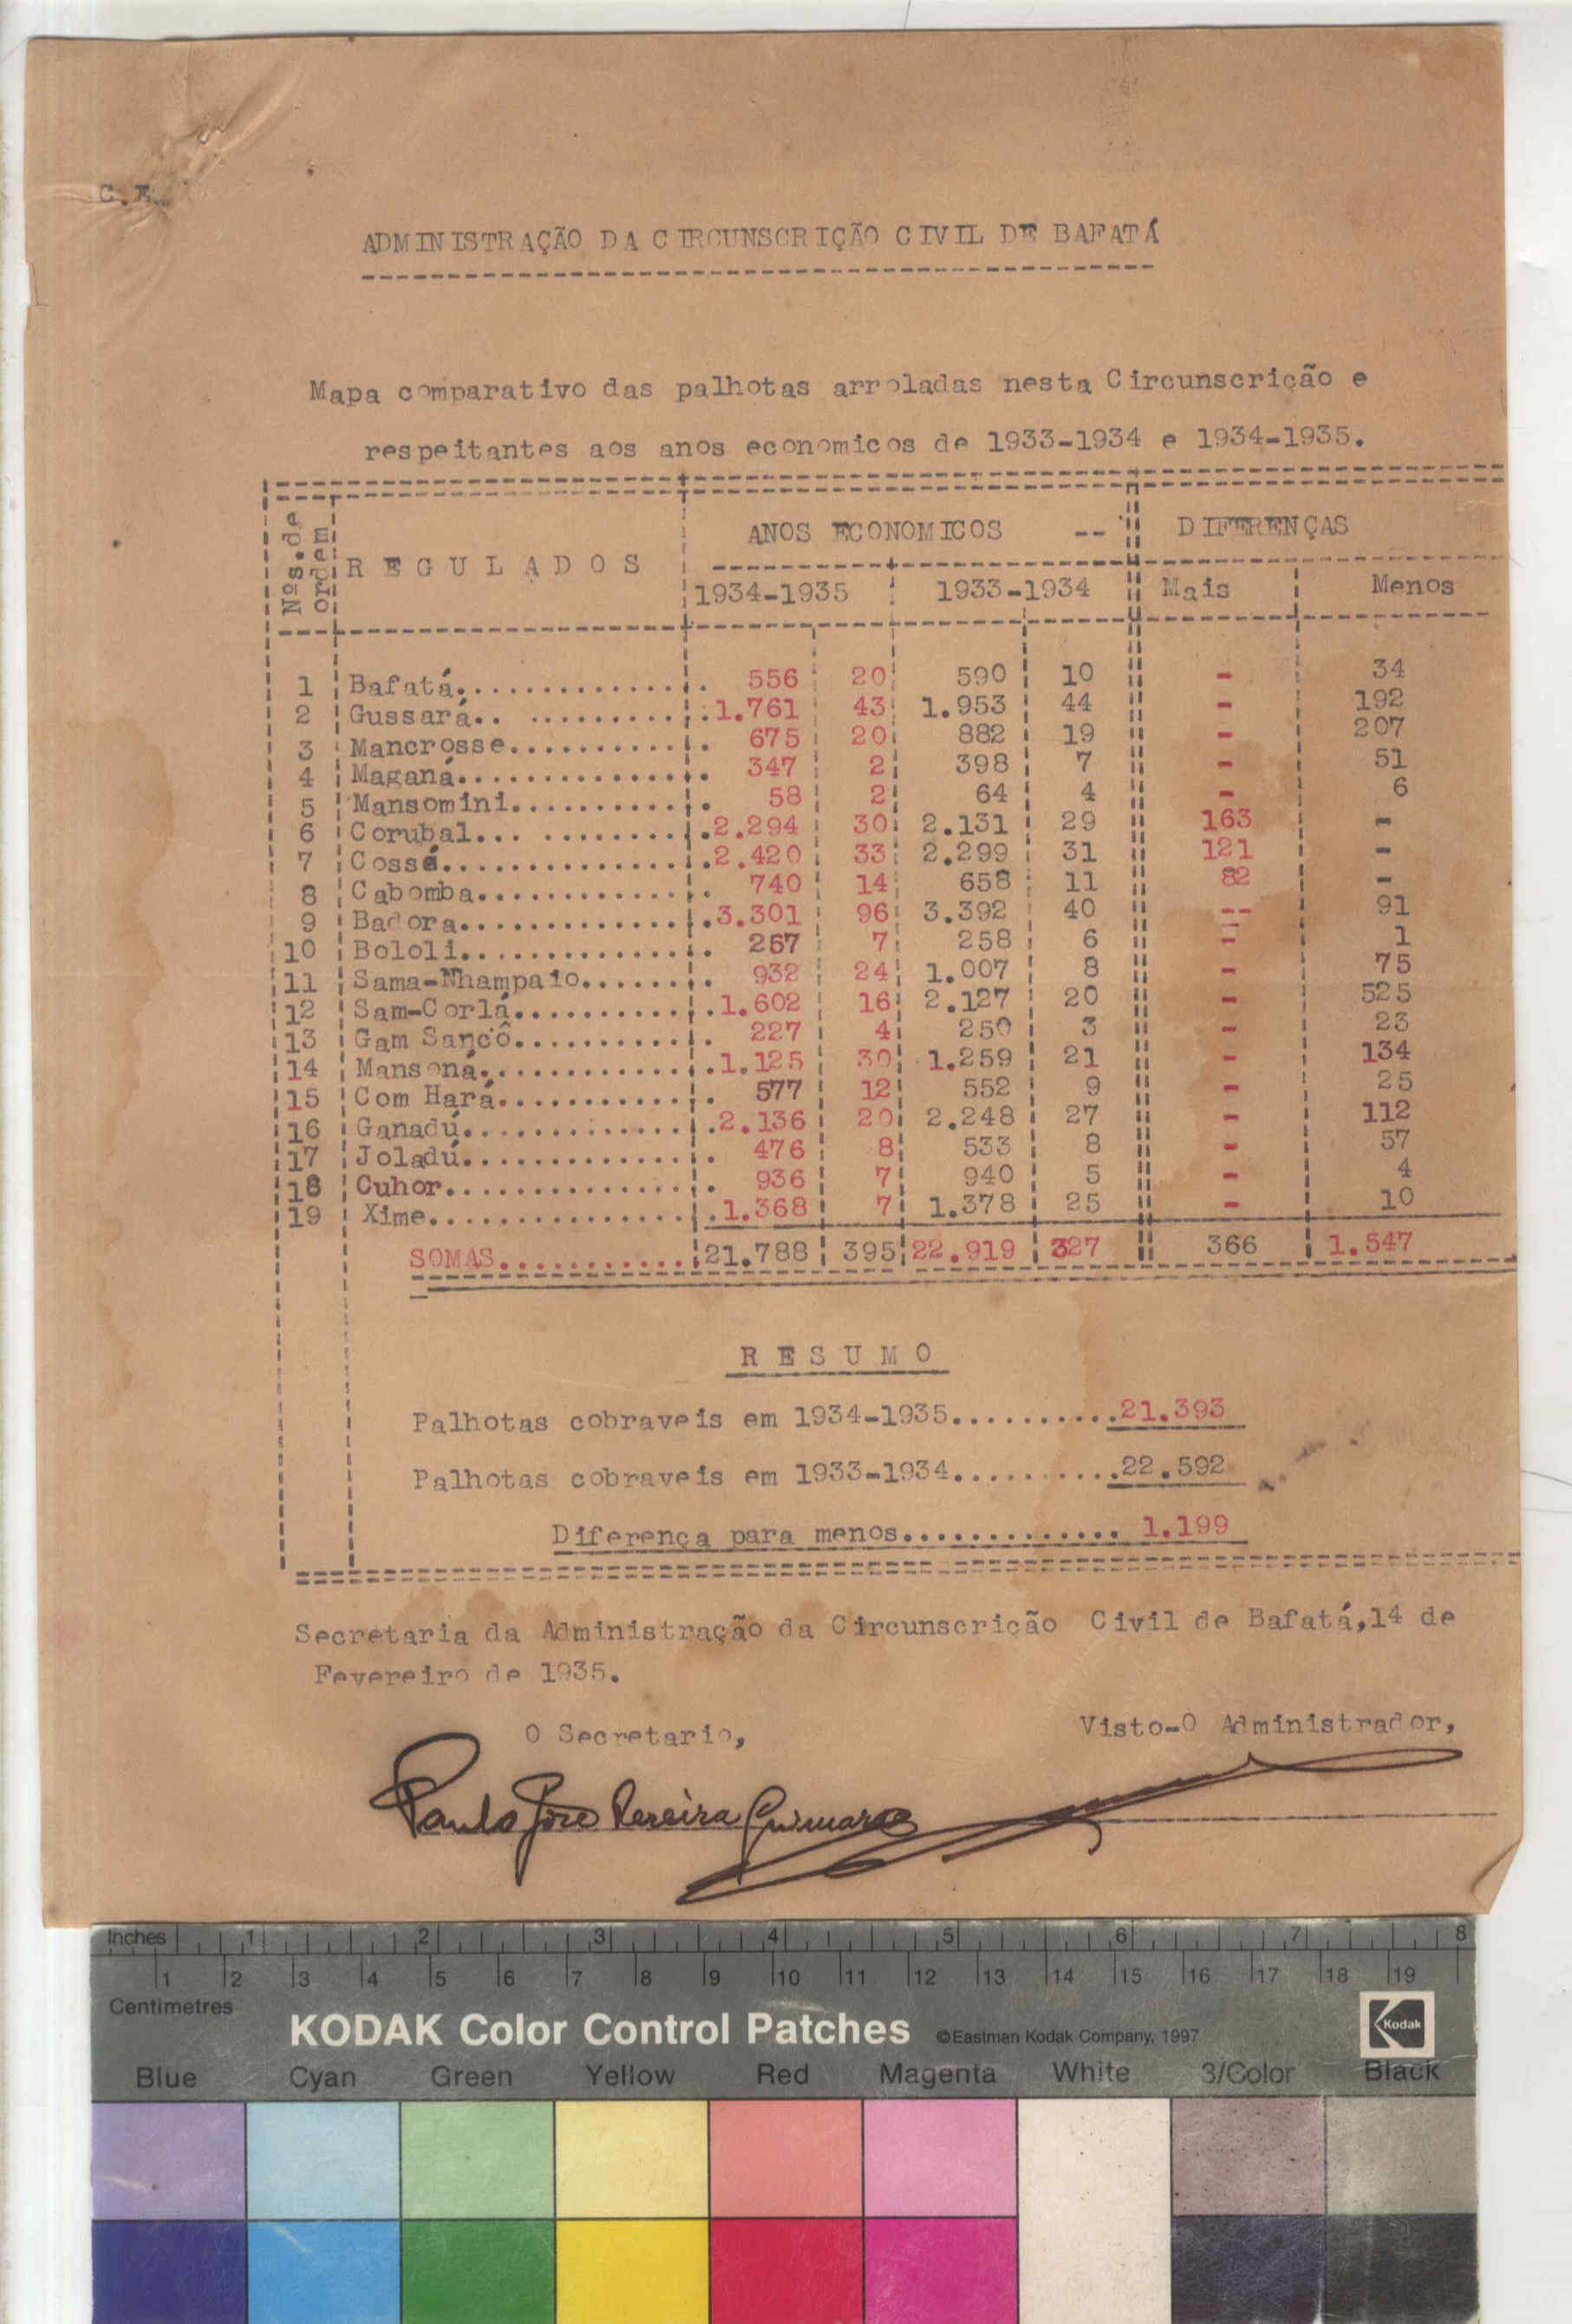 C.E.
ADMINISTRAÇÃO DA CIRCUNSCRIÇÃO CIVIL DE BAFATÁ
Mapa comparativo das palhotas arroladas nesta Circunscrição e
respeitantes aos anos economicos de 1933-1934 e 1934-1935.
Nºs.de ordem REGULADOS ANOS ECONOMICOS -- DIFERENÇAS
1934-1935 1933-1934 Mais Menos
1 Bafatá.............. 556 20 590 10 - 34
2 Gussará.. .......... 1.761 43 1.953 44 - 192
3 Mancrosse........... 675 20 882 19 - 207
4 Maganá.............. 347 2 398 7 - 51
5 Mansomini........... 58 2 64 4 - 6
6 Corubal... ......... 2.294 30 2.131 29 163 -
7 Cossé............... 2.420 33 2.299 31 121 -
8 Cabomba............. 740 14 658 11 82 -
9 Badora.............. 3.301 96 3.392 40 -- 91
10 Bololi.............. 257 7 258 6 - 1
11 Sama-Nhampaio....... 932 24 1.007 8 - 75
12 Sam-Corlá........... 1.602 16 2.127 20 - 525
13 Gam Sancô........... 227 4 250 3 - 23
14 Mansoná............. 1.125 30 1.259 21 - 134
15 Com Hará............ 577 12 552 9 - 25
16 Ganadú.............. 2.136 20 2.248 27 - 112
17 Joladú.............. 476 8 533 8 - 57
18 Cuhor............... 936 7 940 5 - 4
19 Xime................ 1.368 7 1.378 25 - 10
SOMAS........... 21.788 395 22.919 327 366 1.547
RESUMO
Palhotas cobraveis em 1934-1935..........21.393
Palhotas cobraveis em 1933-1934..........22.592
Diferença para menos............. 1.199
Secretaria da Administração da Circunscrição Civil de Bafatá,14 de
Fevereiro de 1935.
O Secretario, Visto-O Administrador,
Paulo José Pereira Guimarães
Inches 1 2 3 4 5 6 7 8
1 2 3 4 5 6 7 8 9 10 11 12 13 14 15 16 17 18 19
Centimetres
KODAK Color Control Patches ©Eastman Kodak Company, 1997 Kodak
Blue Cyan Green Yellow Red Magenta White 3/Color Black